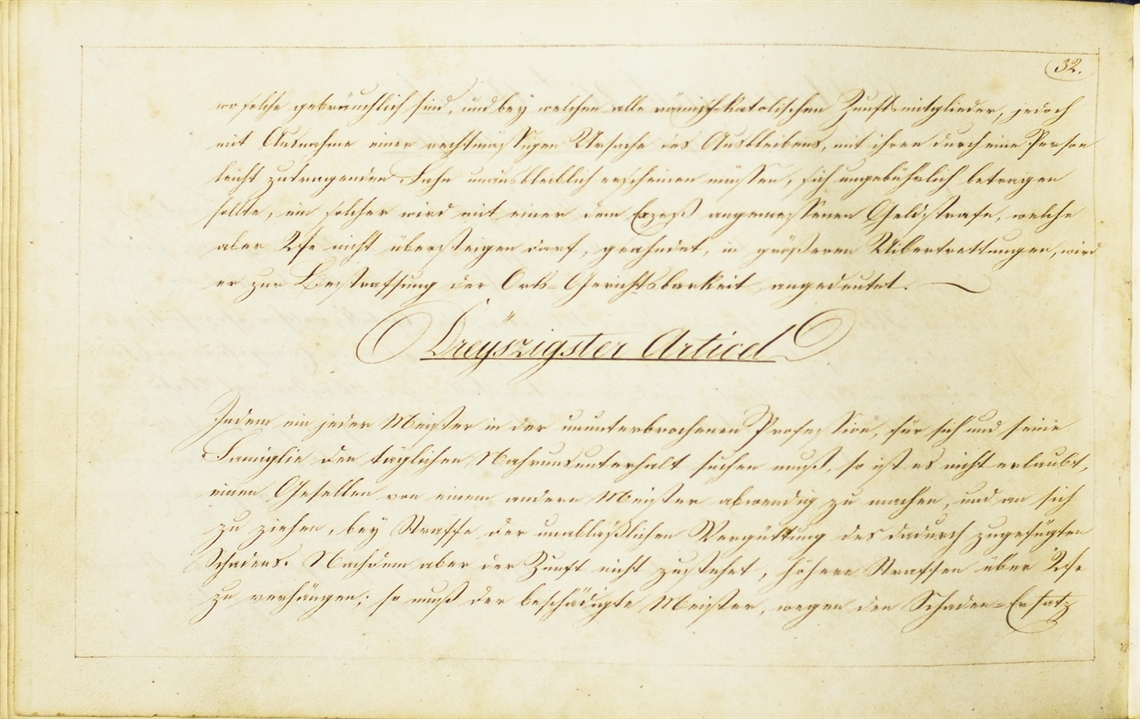 32.
wo solche gebräuchlich sind, und bey welchen alle römisch-katolischen Zunftsmitglieder, jedoch
mit Ausnahme einer rechtmässigen Ursache des Ausbleibens, mit ihren durch eine Person
leicht zutragenden Fahn unausbleiblich erscheinen müssen, sich ungebührlich betragen
sollte, ein solcher wird mit einer dem Exzeß angemessenen Geldstrafe, welche
aber 2 nicht übersteigen darf, geahndet, in größeren Uibertrettungen, wird
er zur Bestraffung der Orts-Gerichtsbarkeit angedeutet.
Dreyszigster Articel
Indem ein jeder Meister in der ununterbrochenen Profession, für sich und seine
Famiglie den täglichen Nahrunsunterhalt suchen muß, so ist es nicht erlaubt,
einen Gesellen von einem andern Meister abwendig zu machen, und an sich
zu ziehen, bey Straffe der unabläßlichen Vergüttung des dadurch zugefügten
Schadens. Nachdem aber der Zunft nicht zustehet, höhere Straffen über 2
zu verhängen; so muß der beschädigte Meister, wegen den Schaden-Ersatz